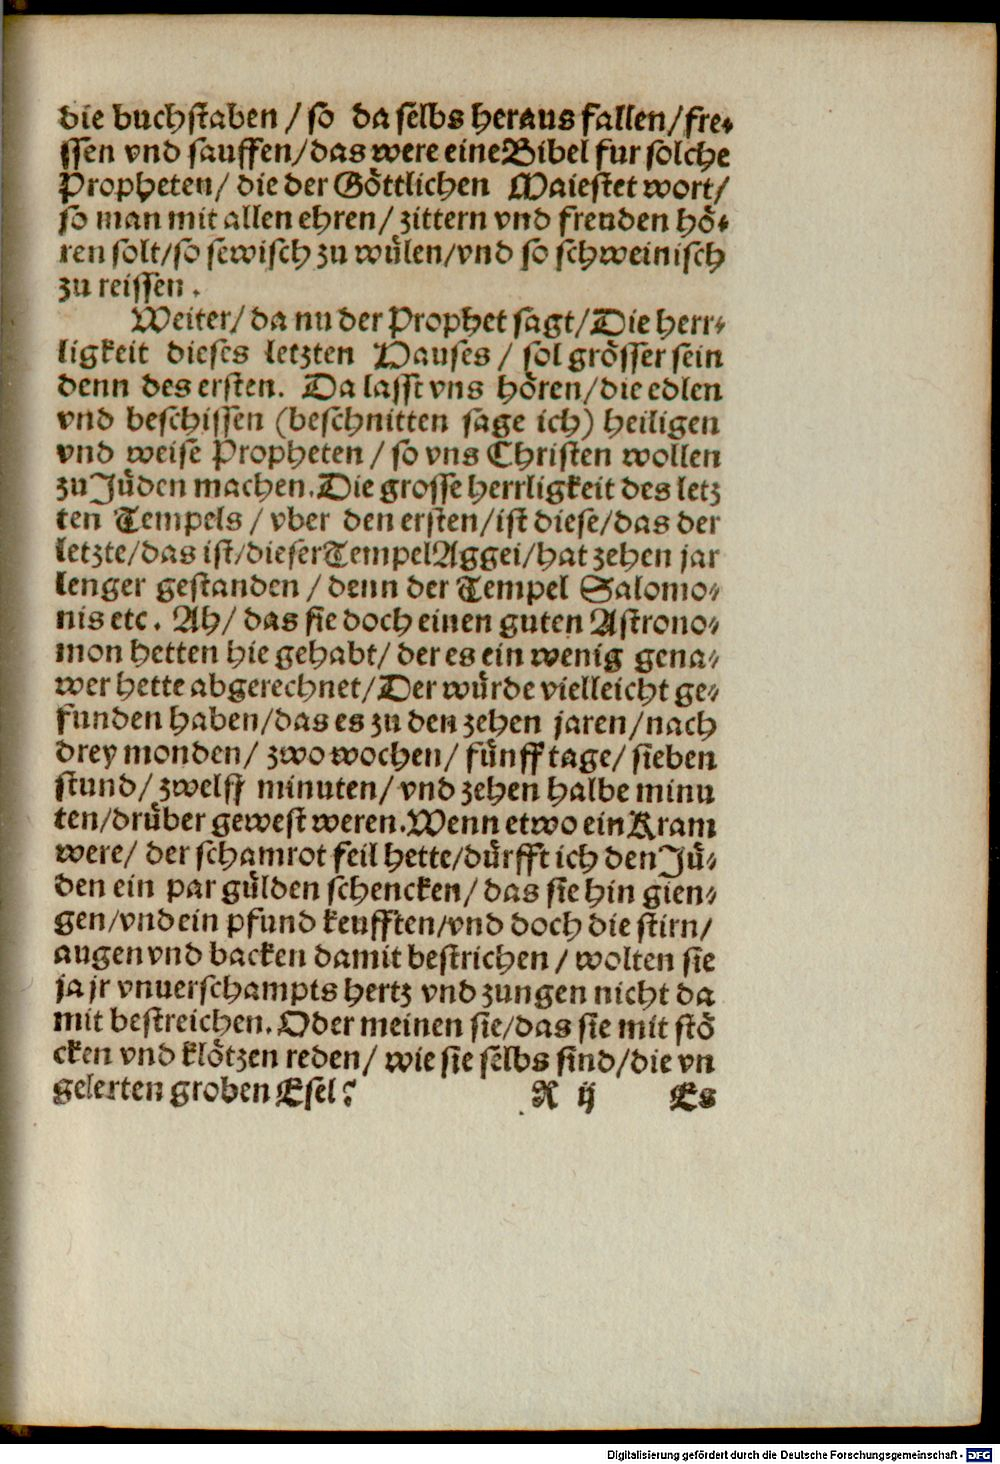 die buchstaben / so da selbs heraus fallen / fre-
ssen vnd sauffen / das were eine Bibel fur solche
Propheten / die der Göttlichen Maiestet wort /
so man mit allen ehren / zittern vnd freuden hö-
ren solt / so sewisch zu wülen / vnd so schweinisch
zu reissen .
Weiter / da nu der Prophet sagt / Die herr-
ligkeit dieses letzten Hauses / sol grösser sein
denn des ersten. Da lasst vns hören / die edlen
vnd beschissen (beschnitten sage ich) heiligen
vnd weise Propheten / so vns Christen wollen
zu Jüden machen. Die grosse herrligkeit des letz
ten Tempels / vber den ersten / ist diese / das der
letzte / das ist / dieser Tempel Aggei / hat zehen jar
lenger gestanden / denn der Tempel Salomo-
nis etc. Ah / das sie doch einen guten Astrono-
mon hetten hie gehabt / der es ein wenig gena-
wer hette abgerechnet / Der würde vielleicht ge-
funden haben / das es zu den zehen jaren / nach
drey monden / zwo wochen / fünff tage / sieben
stund / zwelff minuten / vnd zehen halbe minu
ten / drüber gewest weren. Wenn etwo ein Kram
were / der schamrot feil hette / dürfft ich den Jü-
den ein par gülden schencken / das sie hin gien-
gen / vnd ein pfund keufften / vnd doch die stirn /
augen vnd backen damit bestrichen / wolten sie
ja jr vnuerschampts hertz vnd zungen nicht da
mit bestreichen. Oder meinen sie / das sie mit stö
cken vnd klötzen reden / wie sie selbs sind / die vn
gelerten groben Esel?
R ij Es
Digitalisierung gefördert durch die Deutsche Forschungsgemeinschaft - DFG